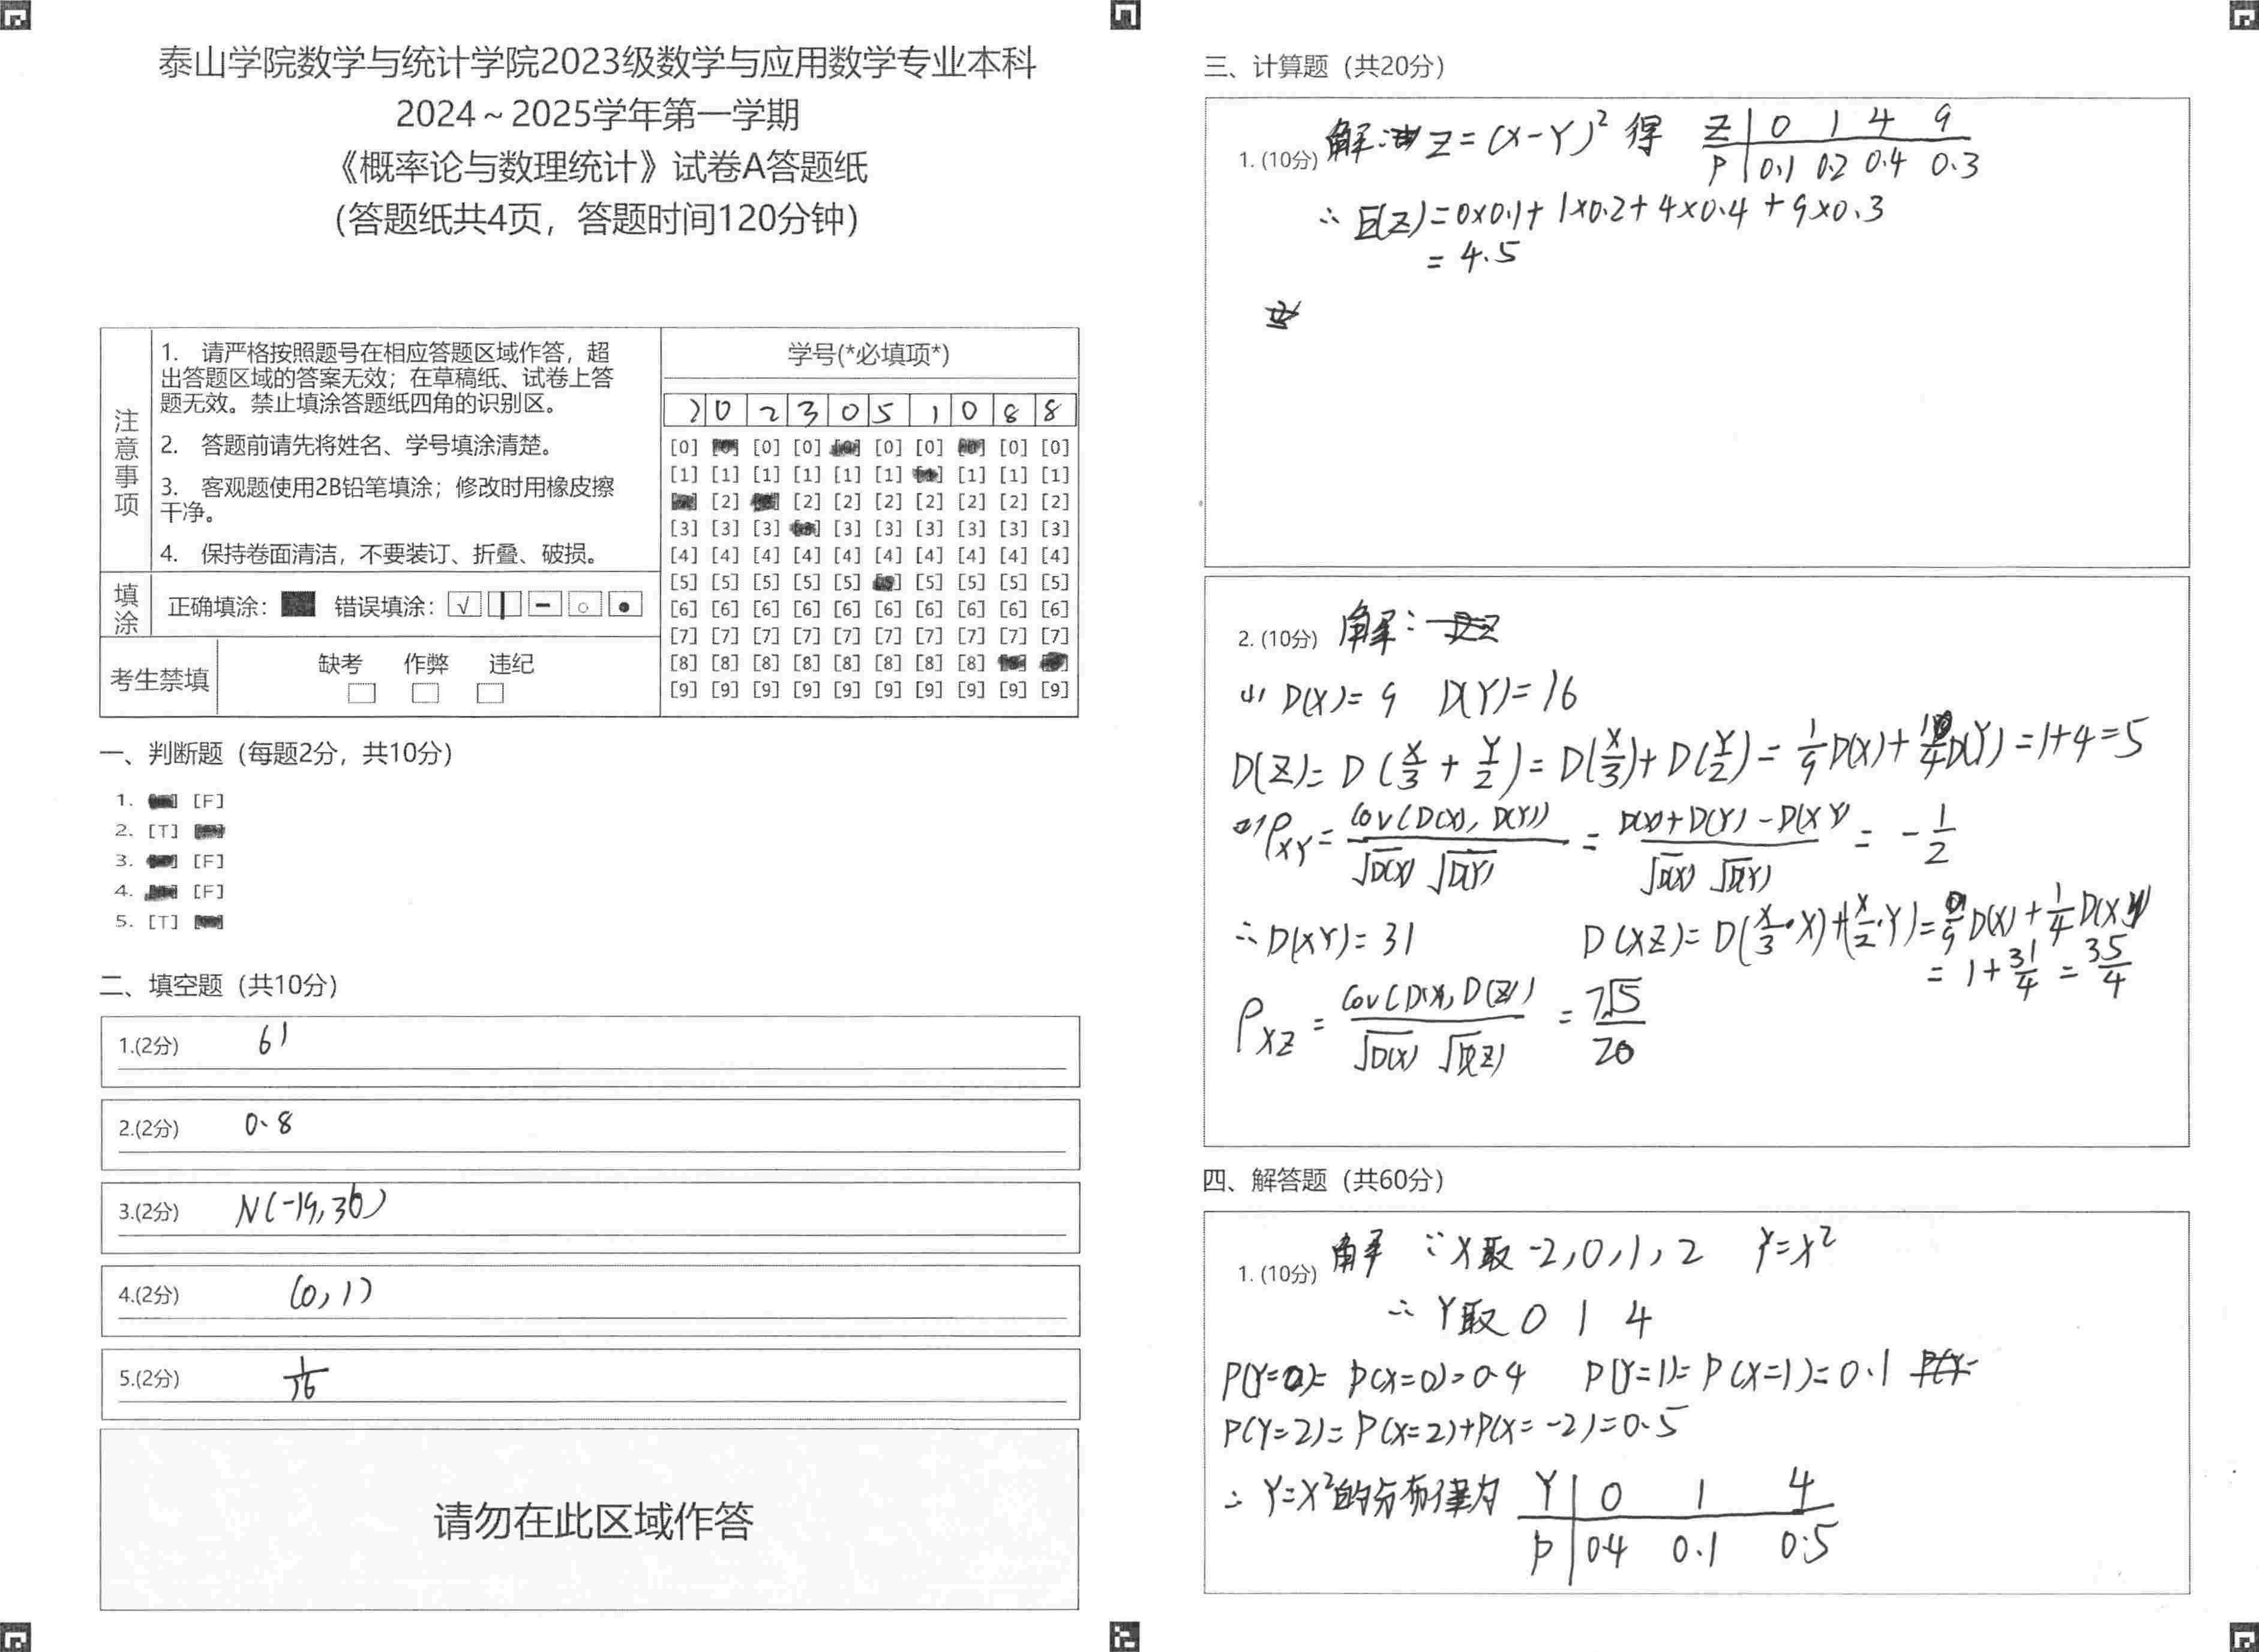 泰山学院数学与统计学院2023级数学与应用数学专业本科
2024～2025学年第一学期
《概率论与数理统计》试卷A答题纸
(答题纸共4页，答题时间120分钟)
注意事项
1. 请严格按照题号在相应答题区域作答，超
出答题区域的答案无效；在草稿纸、试卷上答
题无效。禁止填涂答题纸四角的识别区。
2. 答题前请先将姓名、学号填涂清楚。
3. 客观题使用2B铅笔填涂；修改时用橡皮擦
干净。
4. 保持卷面清洁，不要装订、折叠、破损。
填涂
正确填涂： 错误填涂： √
考生禁填
缺考 作弊 违纪
学号(*必填项*)
2 0 2 3 0 5 1 0 8 8
[0] [0] [0] [0] [0] [0] [0]
[1] [1] [1] [1] [1] [1] [1] [1] [1]
[2] [2] [2] [2] [2] [2] [2] [2]
[3] [3] [3] [3] [3] [3] [3] [3] [3]
[4] [4] [4] [4] [4] [4] [4] [4] [4] [4]
[5] [5] [5] [5] [5] [5] [5] [5] [5]
[6] [6] [6] [6] [6] [6] [6] [6] [6] [6]
[7] [7] [7] [7] [7] [7] [7] [7] [7] [7]
[8] [8] [8] [8] [8] [8] [8] [8]
[9] [9] [9] [9] [9] [9] [9] [9] [9] [9]
一、判断题（每题2分，共10分）
1. [F]
2. [T]
3. [F]
4. [F]
5. [T]
二、填空题（共10分）
1.(2分) 61
2.(2分) 0.8
3.(2分) N(-19,36)
4.(2分) (0,1)
5.(2分) 1/16
请勿在此区域作答
三、计算题（共20分）
1. (10分) 解: Z=(X-Y)² 得 Z | 0 1 4 9
P | 0.1 0.2 0.4 0.3
∴ E(Z)=0×0.1+1×0.2+4×0.4+9×0.3
= 4.5
2. (10分) 解：
(1) D(X)=9 D(Y)=16
D(Z)=D(X/3+Y/2)=D(X/3)+D(Y/2)=1/9D(X)+1/4D(Y)=1+4=5
(2) ρXY=Cov(D(X), D(Y))/√D(X) √D(Y) = D(X)+D(Y)-D(XY)/√D(X) √D(Y) = -1/2
∴D(XY)=31 D(XZ)=D(X/3·X)+(X/2·Y)=1/9D(X)+1/4D(XY)
=1+31/4=35/4
ρXZ = Cov(D(X),D(Z))/√D(X) √D(Z) = 7√5/20
四、解答题（共60分）
1. (10分) 解 ∵X取 -2,0,1,2 Y=X²
∴ Y取 0 1 4
P(Y=0)= P(X=0)=0.4 P(Y=1)=P(X=1)=0.1
P(Y=2)=P(X=2)+P(X=-2)=0.5
∴ Y=X²的分布律为 Y | 0 1 4
P | 0.4 0.1 0.5